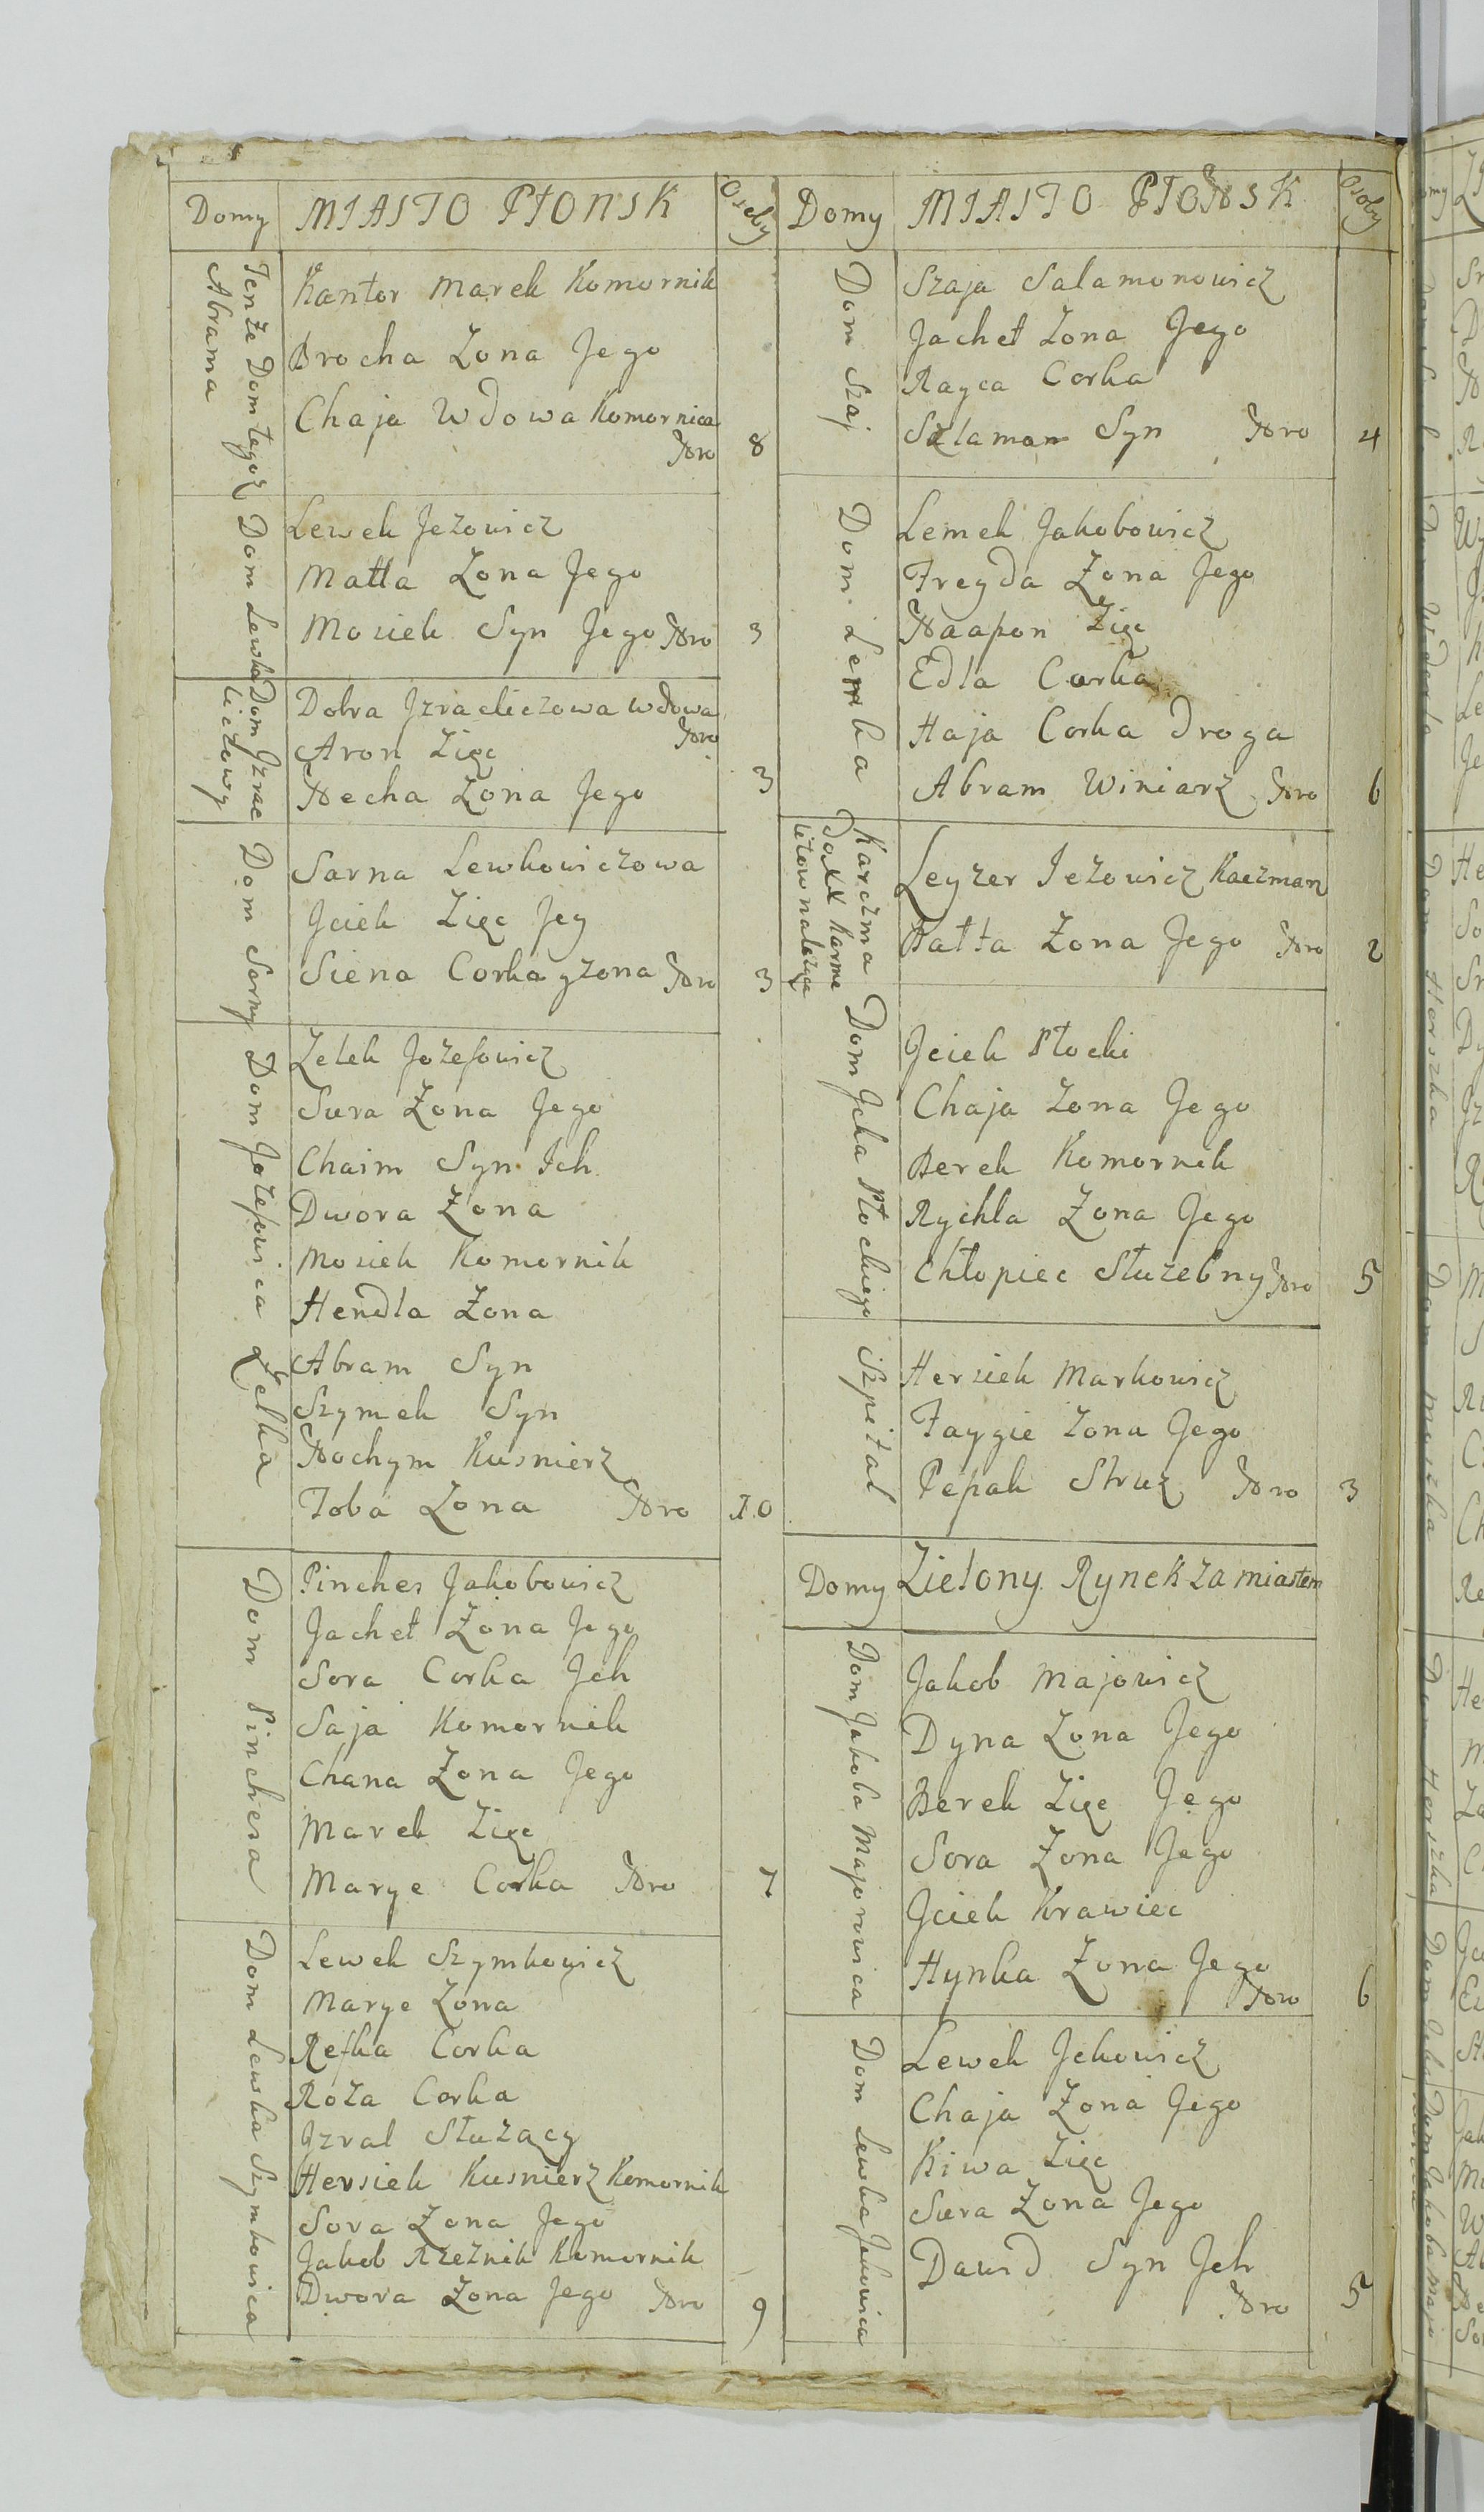 Domy MIASTO PŁONSK Osoby
Tenże Dom tegoż
Abrama
Kantor Marek Komornik
Brocha Zona Jego
Chaja Wdowa Komornica
Nro 8
Dom Lewka
Lewek Jezowicz
Matla Zona Jego
Mosiek Syn Jego Nro 3
Dom Jzrae
liczowy
Dobra Jzraeliczowa wdowa
Nro
Aron Zięc
Necha Zona Jego 3
Dom Sarny
Sarna Lewkowiczowa
Jciek Zięc Jey
Siena Corka yzona Nro 3
Dom Jozefowica Zelka
Zelek Jozefowicz
Sura Zona Jego
Chaim Syn Ich
Dwora Zona
Mosiek Komornik
Hendla Zona
Abram Syn
Szymek Syn
Nochym Kusnierz
Toba Zona Nro 10
Dom Pinchesa
Pinches Jakobowicz
Jachet Zona Jego
Sora Corka Jch
Saja Komornik
Chana Zona Jego
Marek Zięc
Marye Corka Nro 7
Dom Lewka Szymkowica
Lewek Szymkowicz
Marye Zona
Refka Corka
Roza Corka
Jzral Słuzący
Hersiek Kusnierz Komornik
Sora Zona Jego
Jakob Rzeznik Komornik
Dwora Zona Jego Nro 9
Domy MIASTO PŁONSK Osoby
Dom Szaj
Szaja Salamonowicz
Jachet Zona Jego
Rayca Corka
Szlaman Syn Nro 4
Dom Lemka
Lemek Jakobowicz
Freyda Zona Jego
Naapon Zięc
Edla Corka
Haja Corka Droga
Abram Winiarz Nro 6
Karczma
Do XX Karme
litow nalezące
Leyzer Jezowicz Kaczmarz
Natta Zona Jego Nro 2
Dom Jcka Płockiego
Jciek Płocki
Chaja Zona Jego
Berek Komornik
Rychla Zona Jego
Chłopiec Słuzebny Nro 5
Szpital
Hersiek Markowicz
Faygie Zona Jego
Pepak Struz Nro 3
Domy Zielony Rynek za miastem
Dom Jakoba Majorowica
Jakob Majowicz
Dyna Zona Jego
Berek Zięc Jego
Sora Zona Jego
Jciek Krawiec
Hynka Zona Jego
Nro 6
Dom Lewka Jckowica
Lewek Jckowicz
Chaja Zona Jego
Kiwa Zięc
Sura Zona Jego
Dawid Syn Jch
Nro 5